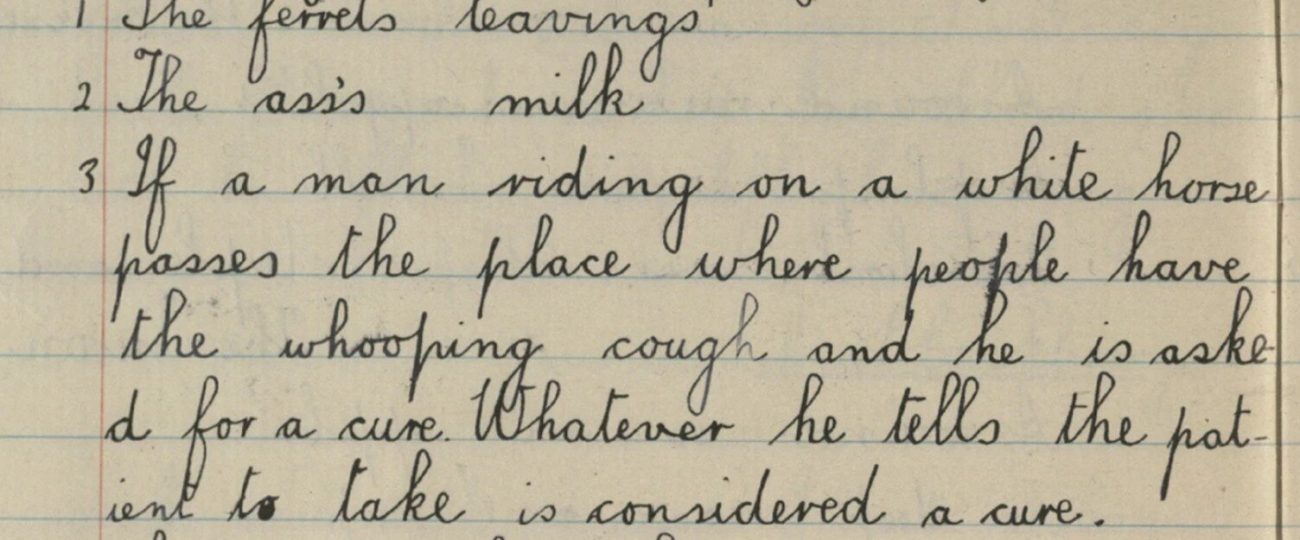 1 The ferrets leavings
2 The ass's milk
3 If a man riding on a white horse
passes the place where people have
the whooping cough and he is aske-
d for a cure. Whatever he tells the pat-
ient to take is considered a cure.